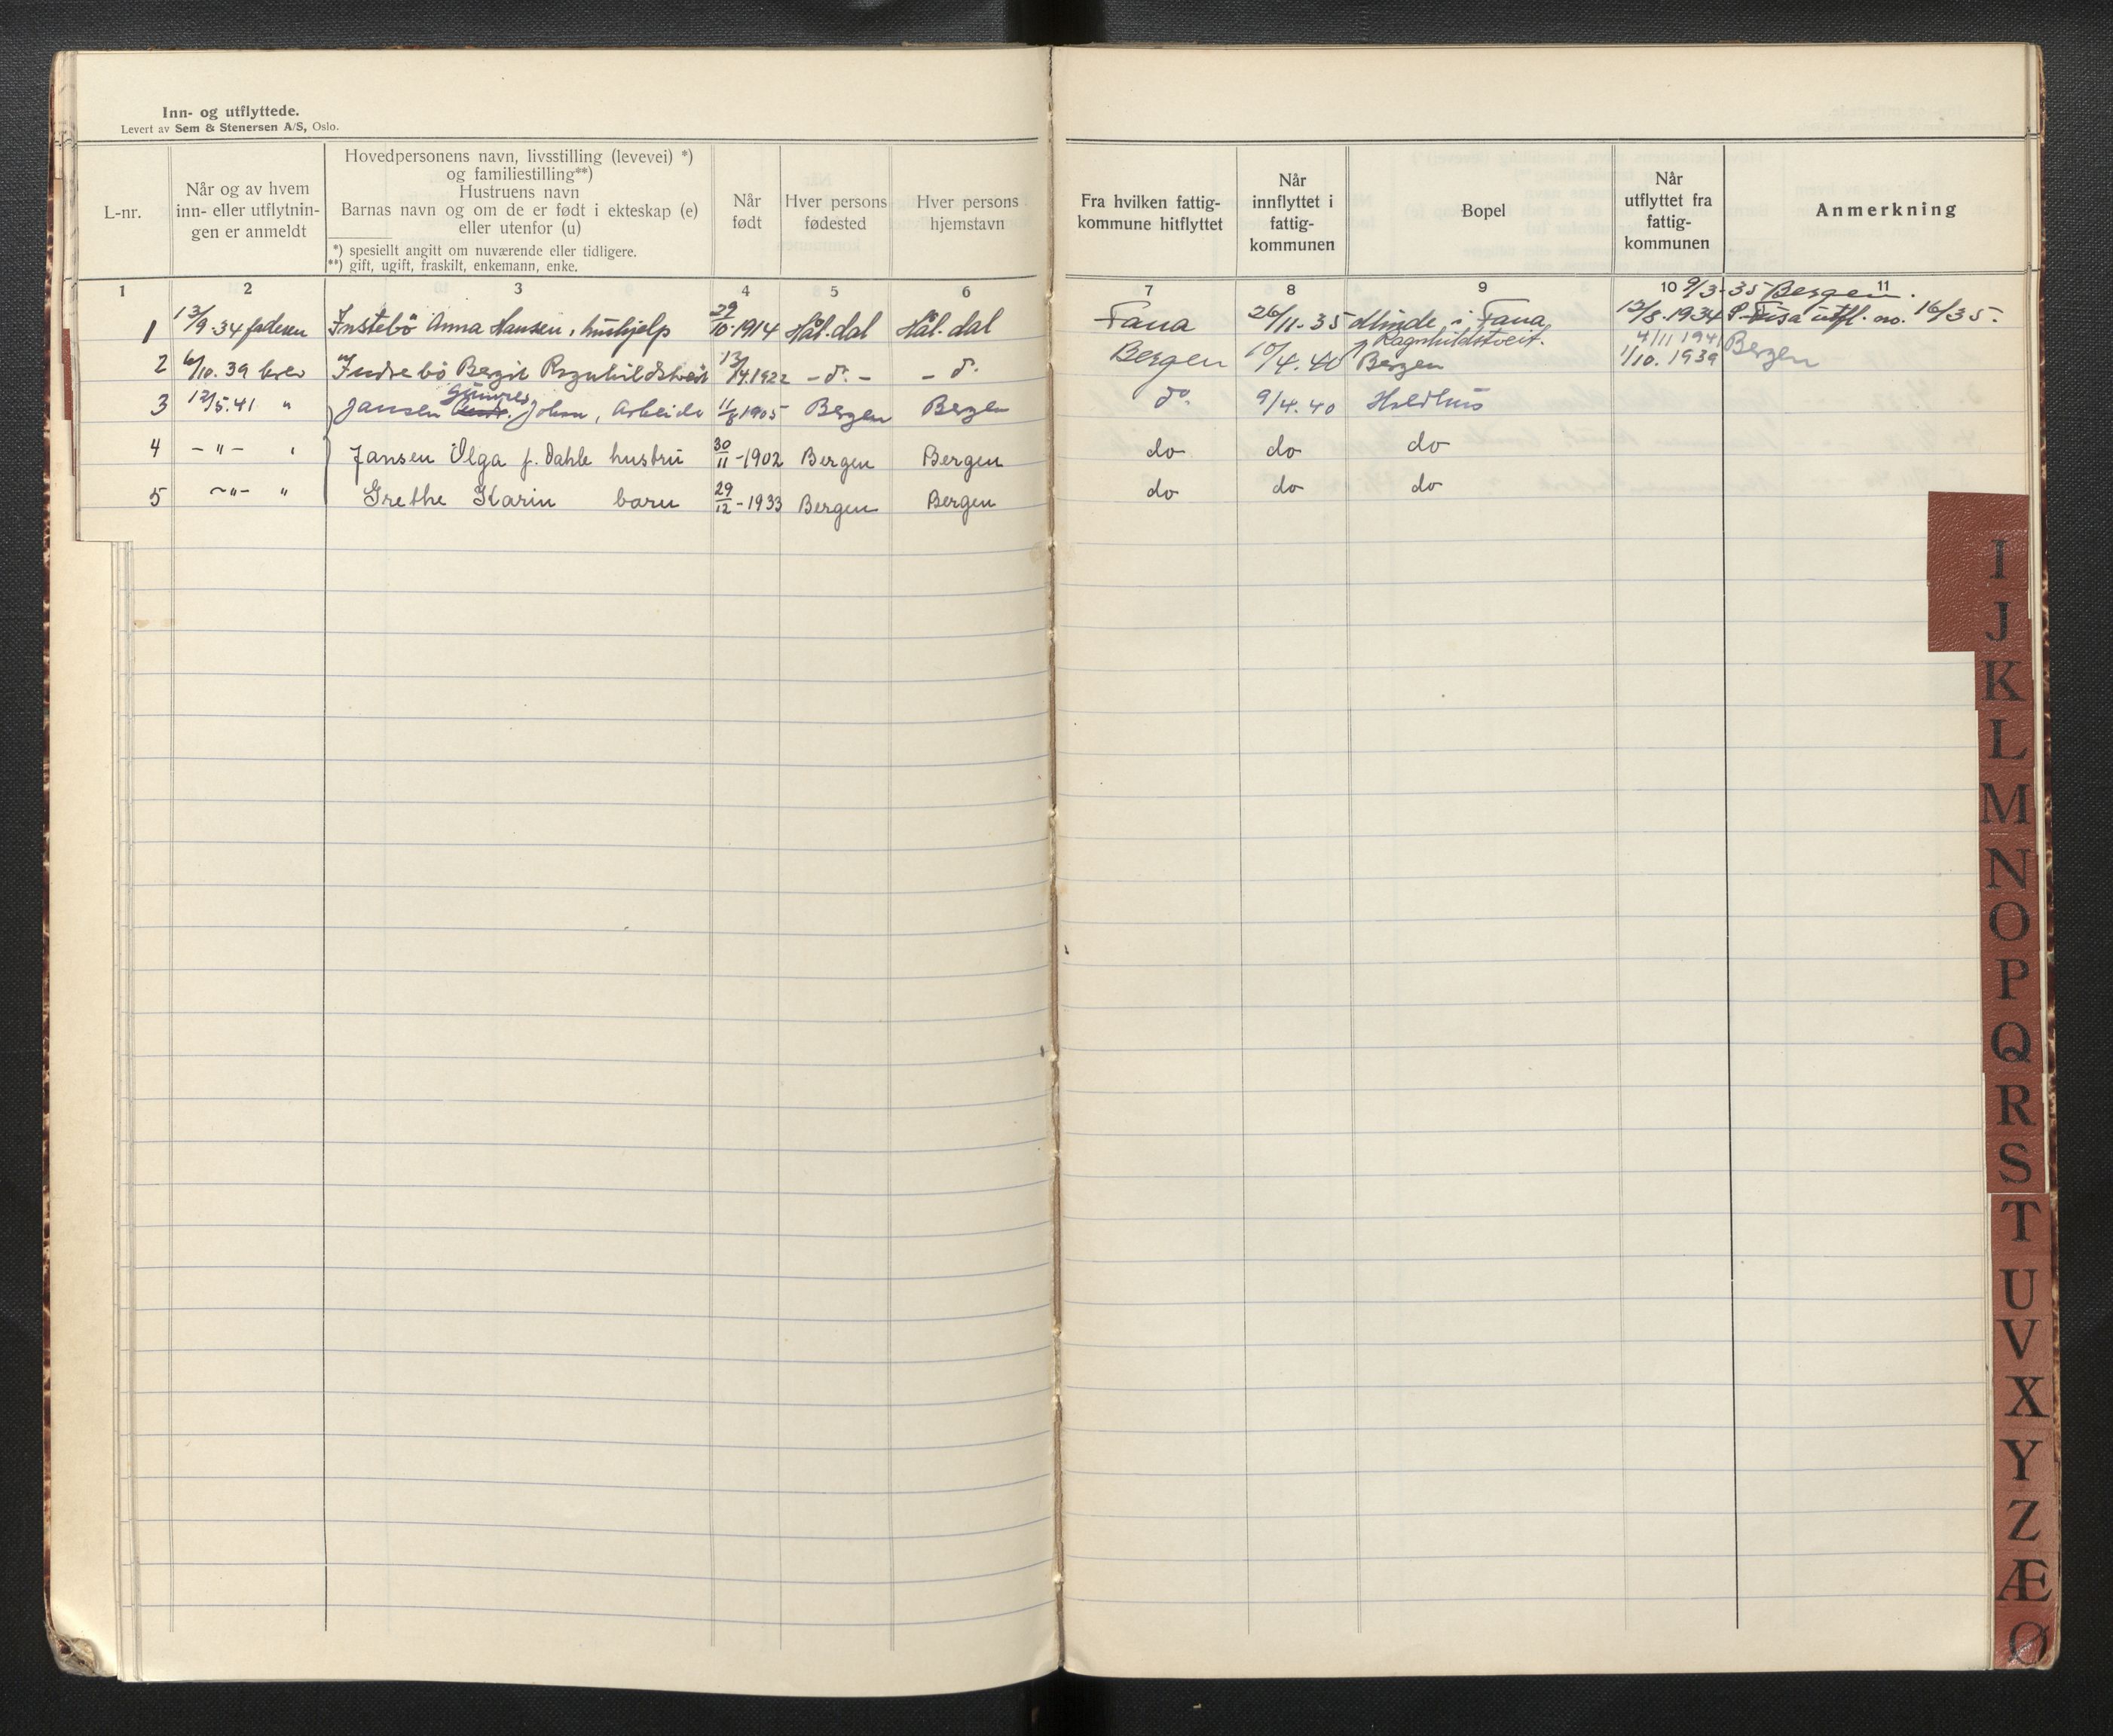 Inn- og utflyttede.
Levert av Sem & Stenersen A/S, Oslo.
L-nr.
Når og av hvem
inn- eller utflytnin-
gen er anmeldt
Hovedpersonens navn, livsstilling (levevei) *)
og familiestilling**)
Hustruens navn
Barnas navn og om de er født i ekteskap (e)
eller utenfor (u)
*) spesiellt angitt om nuværende eller tidligere.
**) gift, ugift, fraskilt, enkemann, enke.
Når
født
Hver persons
fødested
Hver persons
hjemstavn
Fra hvilken fattig-
kommune hitflyttet
Når
innflyttet i
fattig-
kommunen
Bopel
Når
utflyttet fra
fattig-
kommunen
Anmerkning
1 2 3 4 5 6 7 8 9 10 11
9/3-35 Bergen.
1 13/9.34 faderen Instebö Anna Hansen, hushjelp 29/10.1914 Hål.dal Hål.dal Fana 26/11.35 i Fana 12/8.1934 utfl. no. 16/35.
Ragnhildstveit. 4/11 1941 Bergen
2 6/10.39 brev Indrebö Bergit Ragnhildstveit 13/4.1922 - do. - - do. Bergen 10/4.40 Bergen 1/10.1939
3 12/5.41 " Jansen John, Arbeider 11/8.1905 Bergen Bergen do. 9/4.40 Holdhus
4 - " - " Jansen Olga f. Dahle hustru 30/11-1902 Bergen Bergen do do do
5 - " - " Grethe Karin barn 29/12-1933 Bergen Bergen do do do
I
J
K
L
M
N
O
P
Q
R
S
T
U
V
X
Y
Z
Æ
Ø